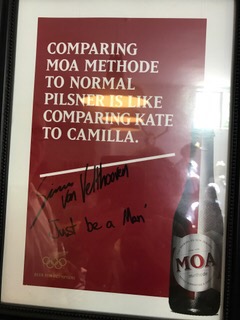 COMPARING
MOA METHODE
TO NORMAL
PILSNER IS LIKE
COMPARING KATE
TO CAMILLA.
van Velthooven
'Just be a Man'
MOA